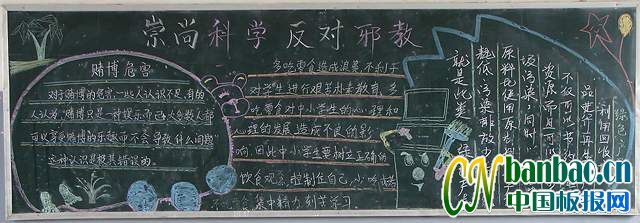 崇尚科学 反对邪教
赌博危害
对于赌博的危害,一些人认识不足,有的
人认为:赌博只是一种娱乐而已,大多数人都
可以享受赌博的乐趣而不会导致什么问题
这种认识是极其错误的。
多吃零食造成浪费,不利于
对学生进行艰苦朴素教育,多
吃零食对中小学生的心理和
心理的发展造成不良的影
响,因此中小学生要树立正确的
饮食观点,控制住自己
集中精力刻苦学习。
绿色
利用回收
品进行再生
不仅可以节约
资源而且可
圾污染,同时
原料要使用原
耗低、污染
就是此类
CN banbao.com
中国板报网